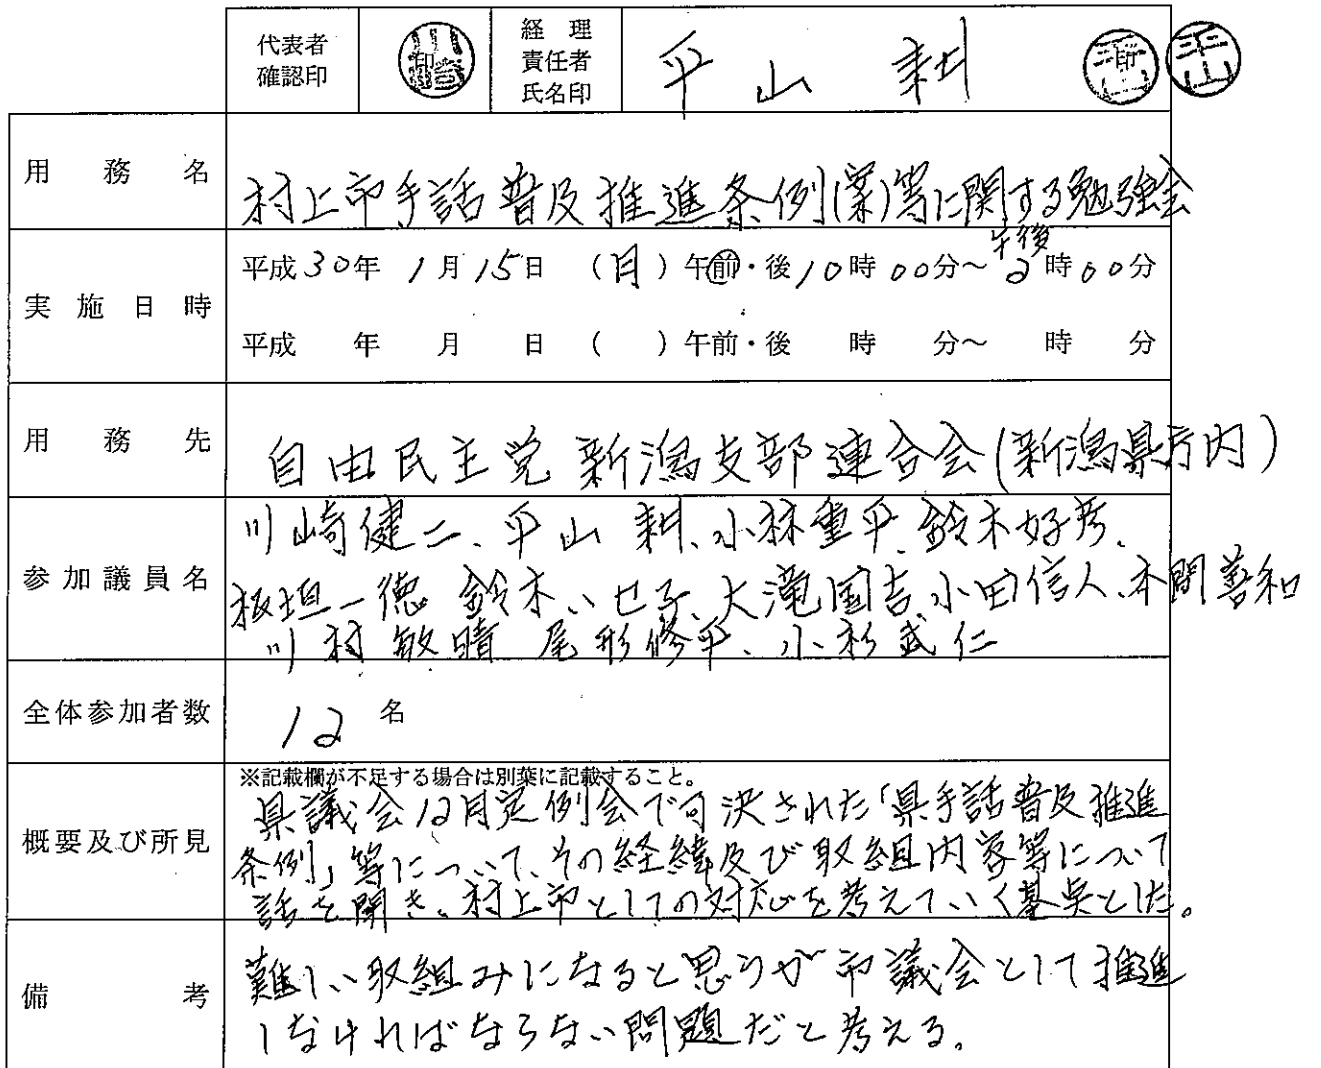 代表者
確認印
印
経理
責任者
氏名印
平山 耕
印
平山
用務名
村上市手話普及推進条例(案)等に関する勉強会
実施日時
平成30年 1月15日 (月)午前・後10時00分~午後2時00分
平成 年 月 日 ( )午前・後 時 分~ 時 分
用務先
自由民主党 新潟支部連合会(新潟県庁内)
参加議員名
川崎健二、平山 耕、小林重平、鈴木好彦、
板垣一徳 鈴木いせ子、大滝国吉、小田信人、本間善和
川村敏晴 尾形修平、小杉武仁
全体参加者数
12名
※記載欄が不足する場合は別葉に記載すること。
概要及び所見
県議会12月定例会で可決された「県手話普及推進
条例」等について、その経緯及び取組内容等について
話を聞き、村上市としての対応を考えていく基点とした。
備考
難しい取組みになると思うが市議会として推進
しなければならない問題だと考える。